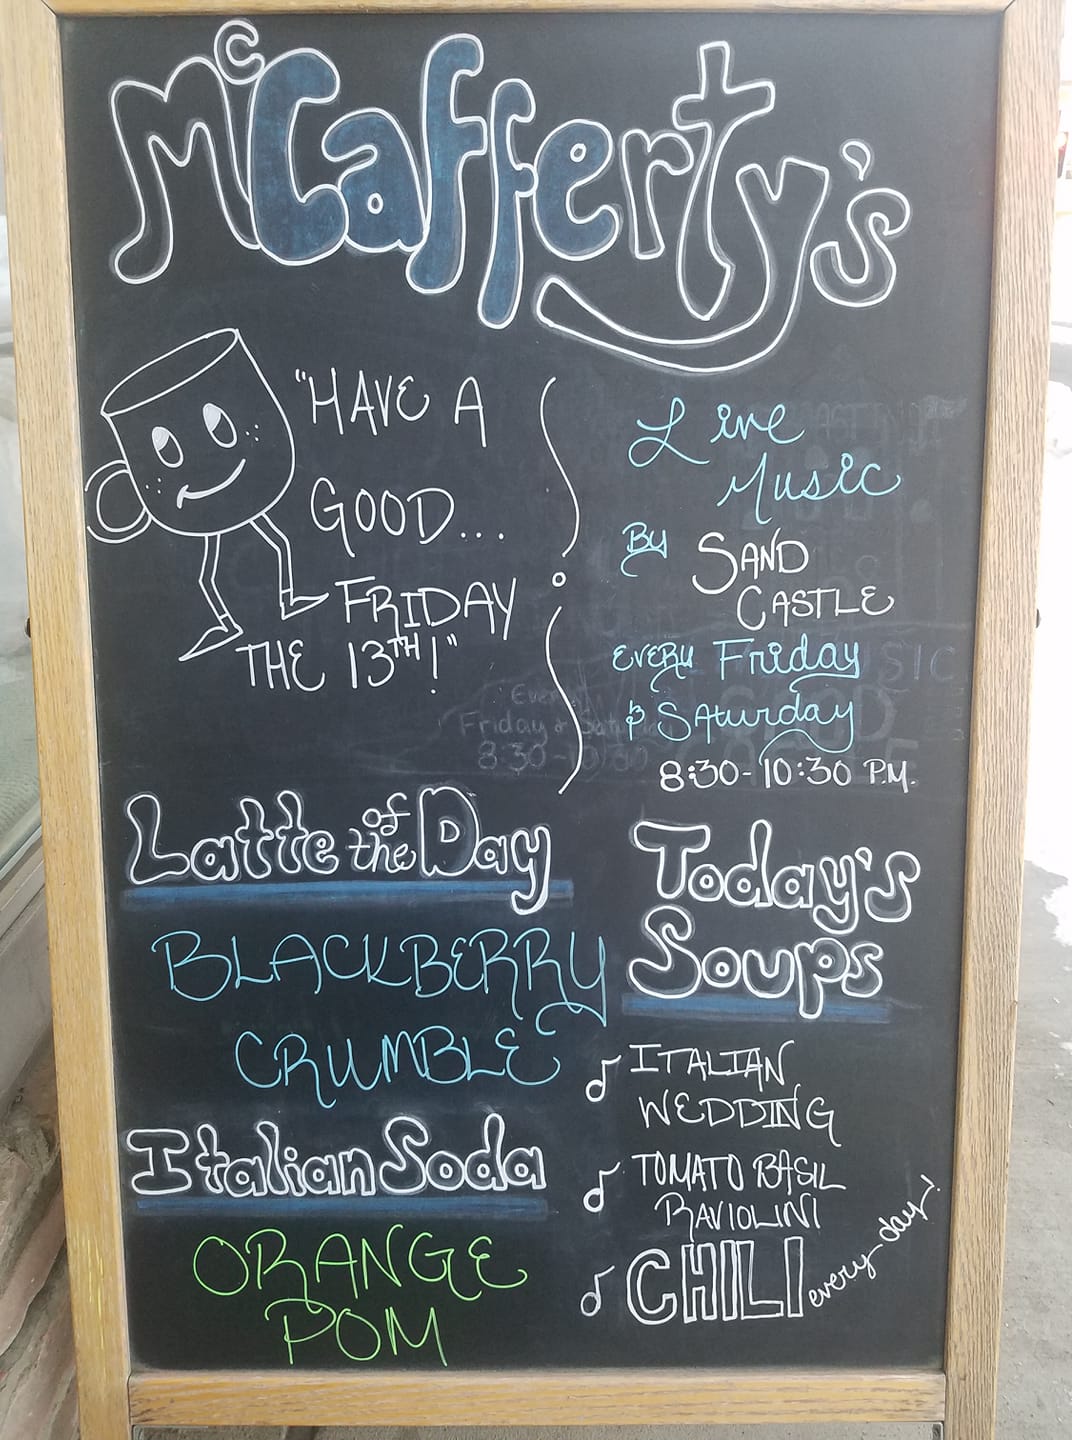 McCafferty's
"HAVE A
GOOD...
FRIDAY
THE 13TH!"
Live
Music
By SAND
CASTLE
EVERY Friday
& SAturday
8:30-10:30 P.M.
Every
Friday &
8:30-10:30
Latte of the Day
BLACKBERRY
CRUMBLE
Italian Soda
ORANGE
POM
Today's
Soups
ITALIAN
WEDDING
TOMATO BASIL
RAVIOLINI
CHILI every day!